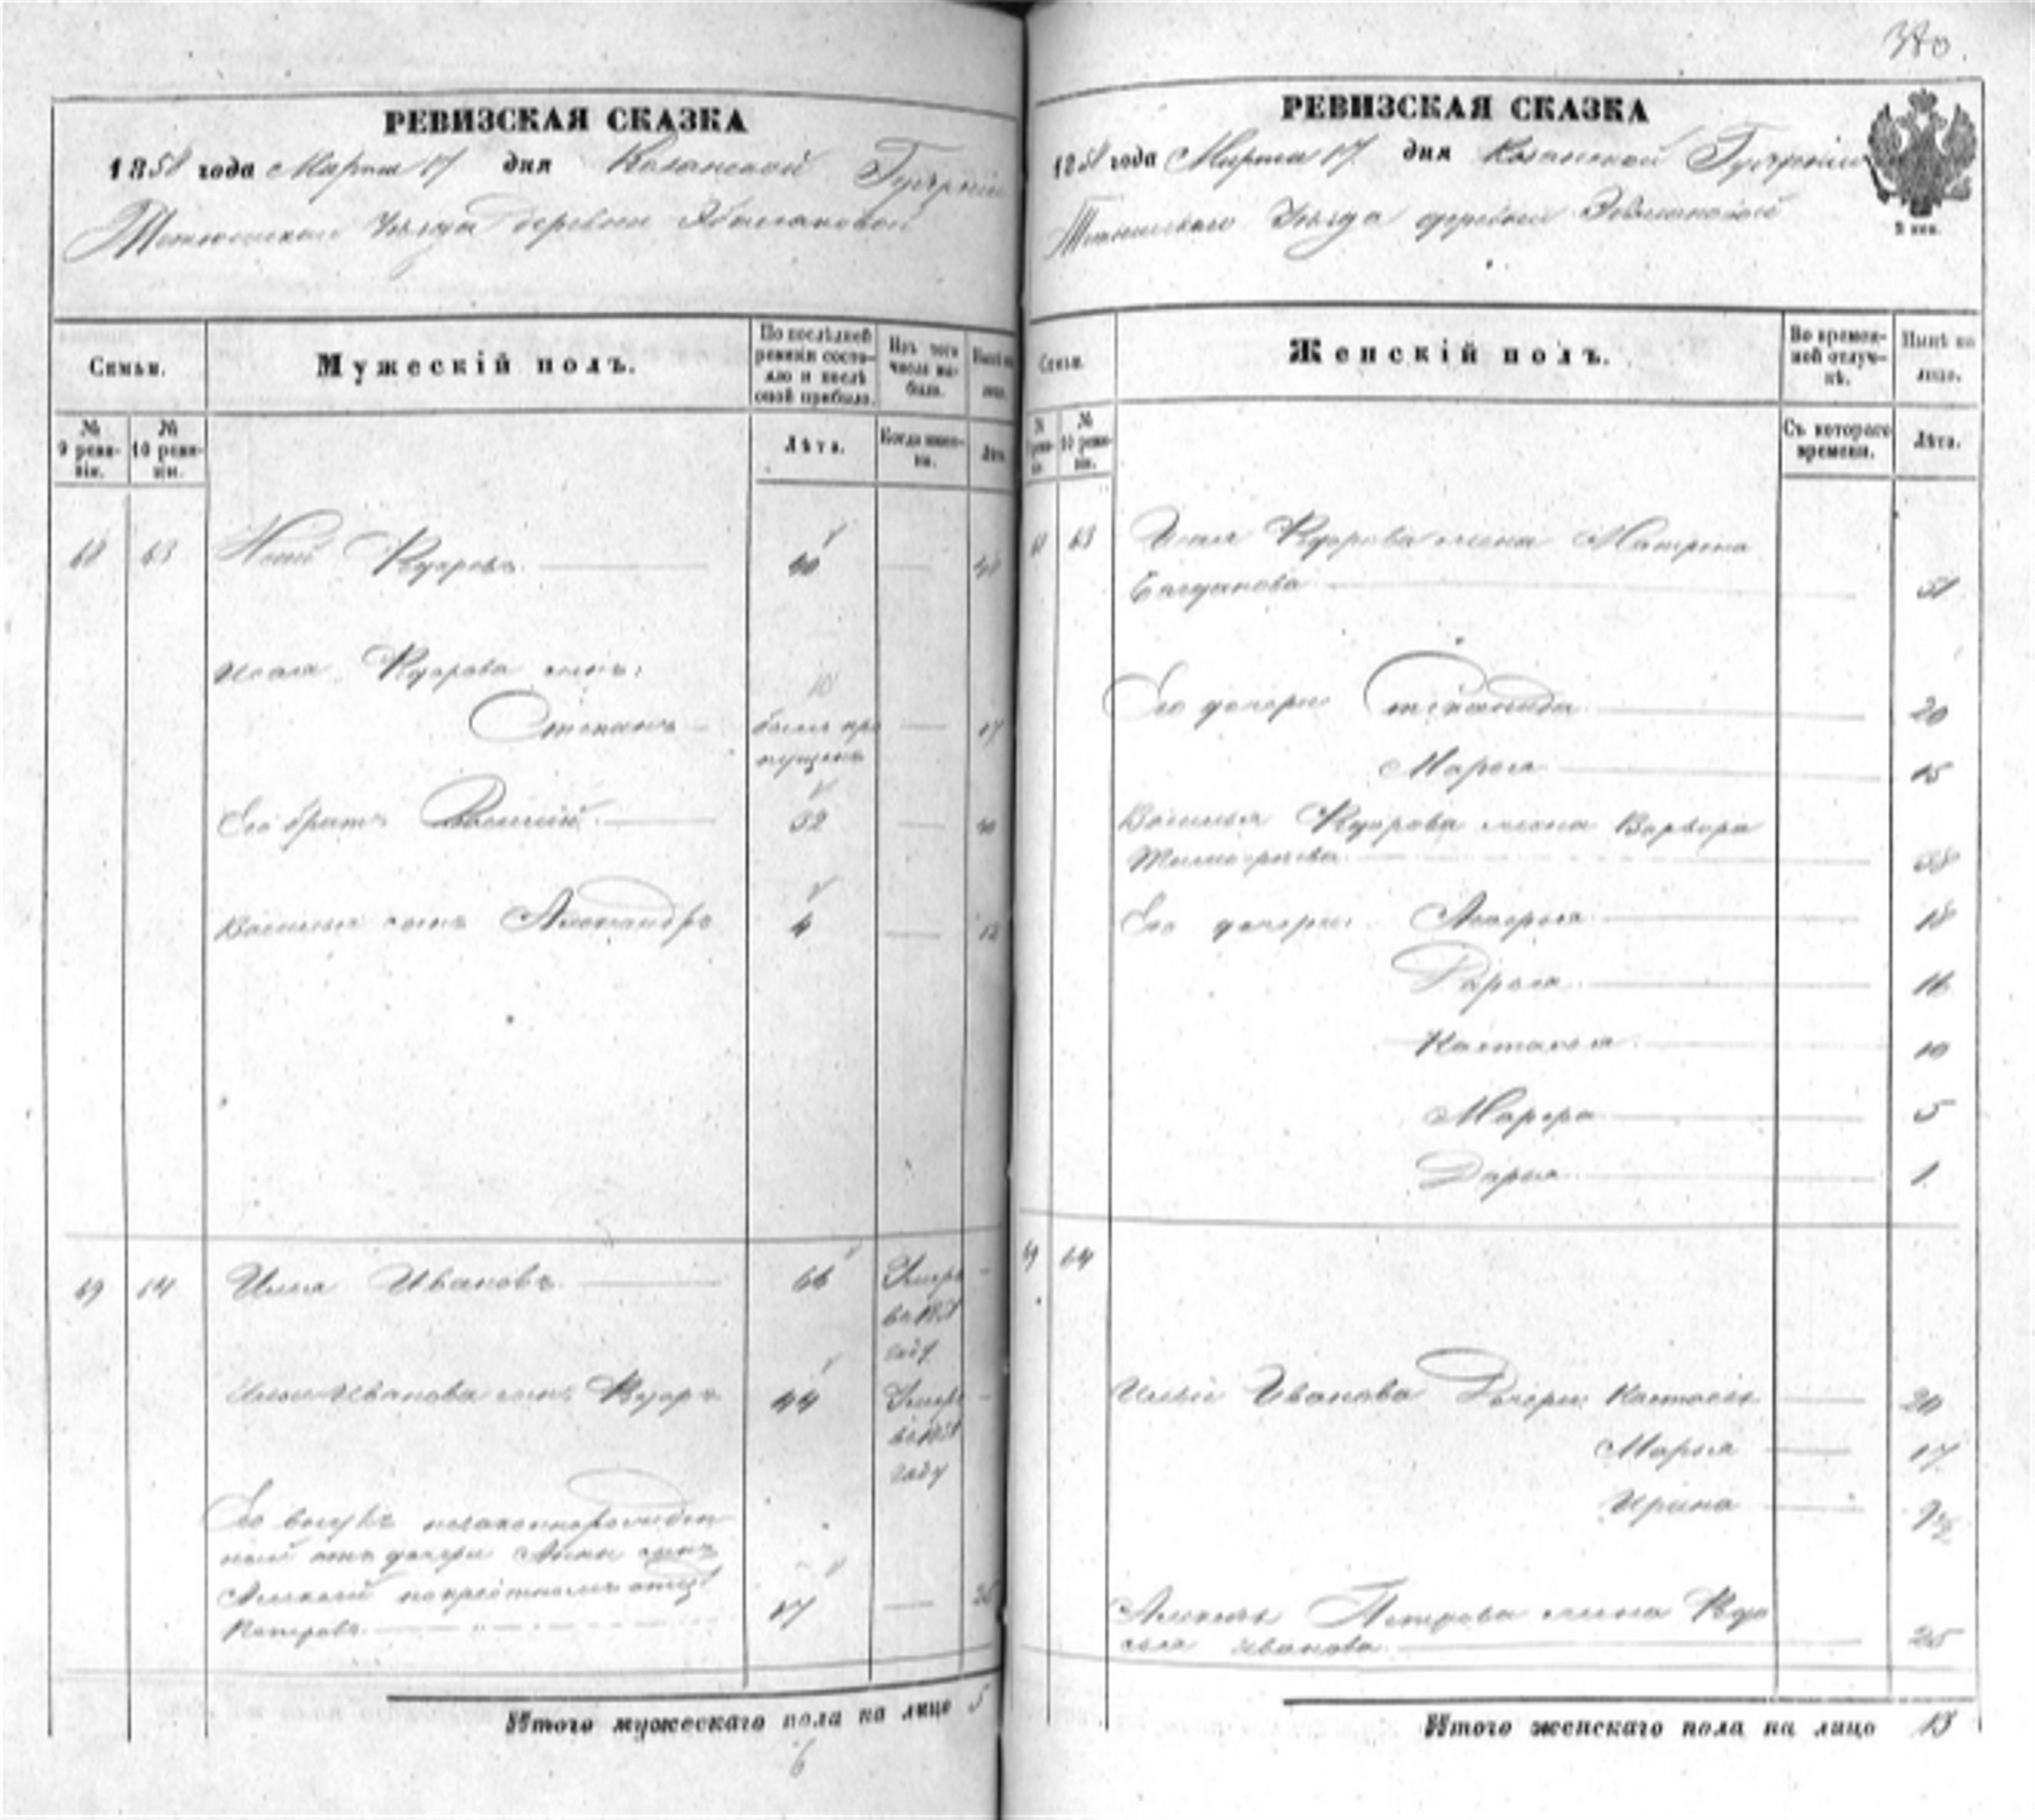 РЕВИЗСКАЯ СКАЗКА
1858 года Марта 17 дня Казанской Губерніи
Тетюшскаго Уѣзда деревни
Семьи.
Мужескій полъ.
По послѣдней ревизіи состояло и послѣ оной прибыло.
Изъ того числа выбыло.
Нынѣ на лицо.
№ 9 ревизіи.
№ 10 ревизіи.
Лѣта.
Когда именно.
Лѣта.
68 63 Ѳедоровъ 40 48
Исая Ѳедорова сынъ:
Степанъ былъ пропущенъ 17
Его братъ Василій 32 40
Василья сынъ Александръ 4 12
69 64 Илья Ивановъ 66 Умеръ въ 1851 году
Ильи Иванова сынъ Ѳедоръ 44 Умеръ въ 1851 году
Его внукъ незаконнорожден
ный отъ дочери Анны сынъ
Алексѣй по крестному отцу
Петровъ 17 25
Итого мужескаго пола на лицо 5
6
РЕВИЗСКАЯ СКАЗКА
1858 года Марта 17 дня Казанской Губерніи
Тетюшскаго Уѣзда деревни
Семьи.
Женскій полъ.
Во временной отлучкѣ.
Нынѣ на лицо.
№ 9 ревизіи.
№ 10 ревизіи.
Съ котораго времени.
Лѣта.
68 63 Исая Ѳедорова жена Матрена
Богданова 51
Его дочери Степанида 20
Марья 15
Василья Ѳедорова жена Варвара
Тимофеева 38
Его дочери: 18
Дарья 16
Настасья 10
Марфа 5
Дарья 1
69 64
Ильи Иванова Дочери: Настасья 20
Марья 17
Ирина 9½
Алексѣя Петрова жена Ѳедо
сья Иванова 25
Итого женскаго пола на лицо 13